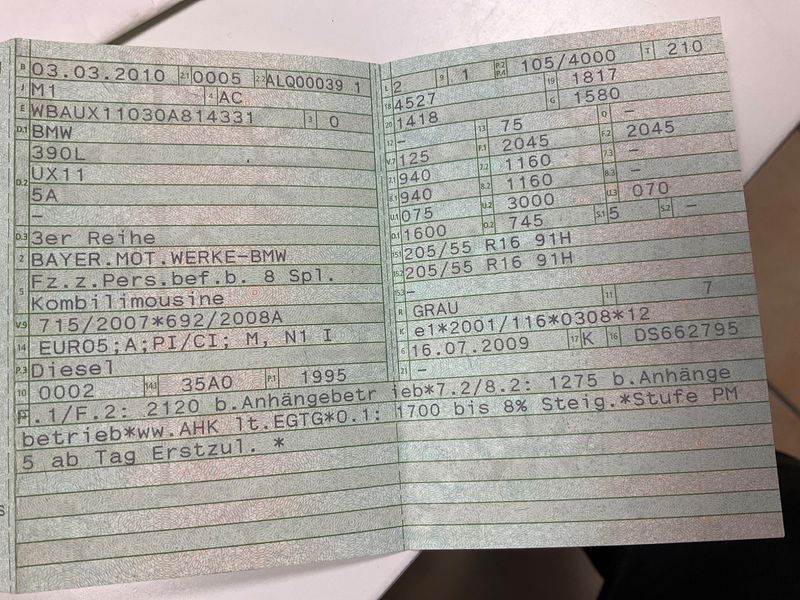 B 03.03.2010 2.1 0005 2.2 ALQ00039 1
J M1 4 AC
E WBAUX11030A814331 3 0
D.1 BMW
390L
D.2 UX11
5A
–
D.3 3er Reihe
2 BAYER.MOT.WERKE-BMW
5 Fz.z.Pers.bef.b. 8 Spl.
Kombilimousine
V.9 715/2007*692/2008A
14 EURO5;A;PI/CI; M, N1 I
P.3 Diesel
10 0002 14.1 35A0 P.1 1995
L 2 9 1 P.2 P.4 105/4000 T 210
18 4527 19 1817
20 1418 G 1580
12 – 13 75 Q –
V.7 125 F.1 2045 F.2 2045
7.1 940 7.2 1160 7.3 –
8.1 940 8.2 1160 8.3 –
U.1 075 U.2 3000 U.3 070
O.1 1600 O.2 745 S.1 5 S.2 –
15.1 205/55 R16 91H
15.2 205/55 R16 91H
15.3 –
R GRAU 11 7
K e1*2001/116*0308*12
6 16.07.2009 17 K 16 DS662795
21 –
.1/F.2: 2120 b.Anhängebetr ieb*7.2/8.2: 1275 b.Anhänge
betrieb*ww.AHK lt.EGTG*0.1: 1700 bis 8% Steig.*Stufe PM
5 ab Tag Erstzul. *